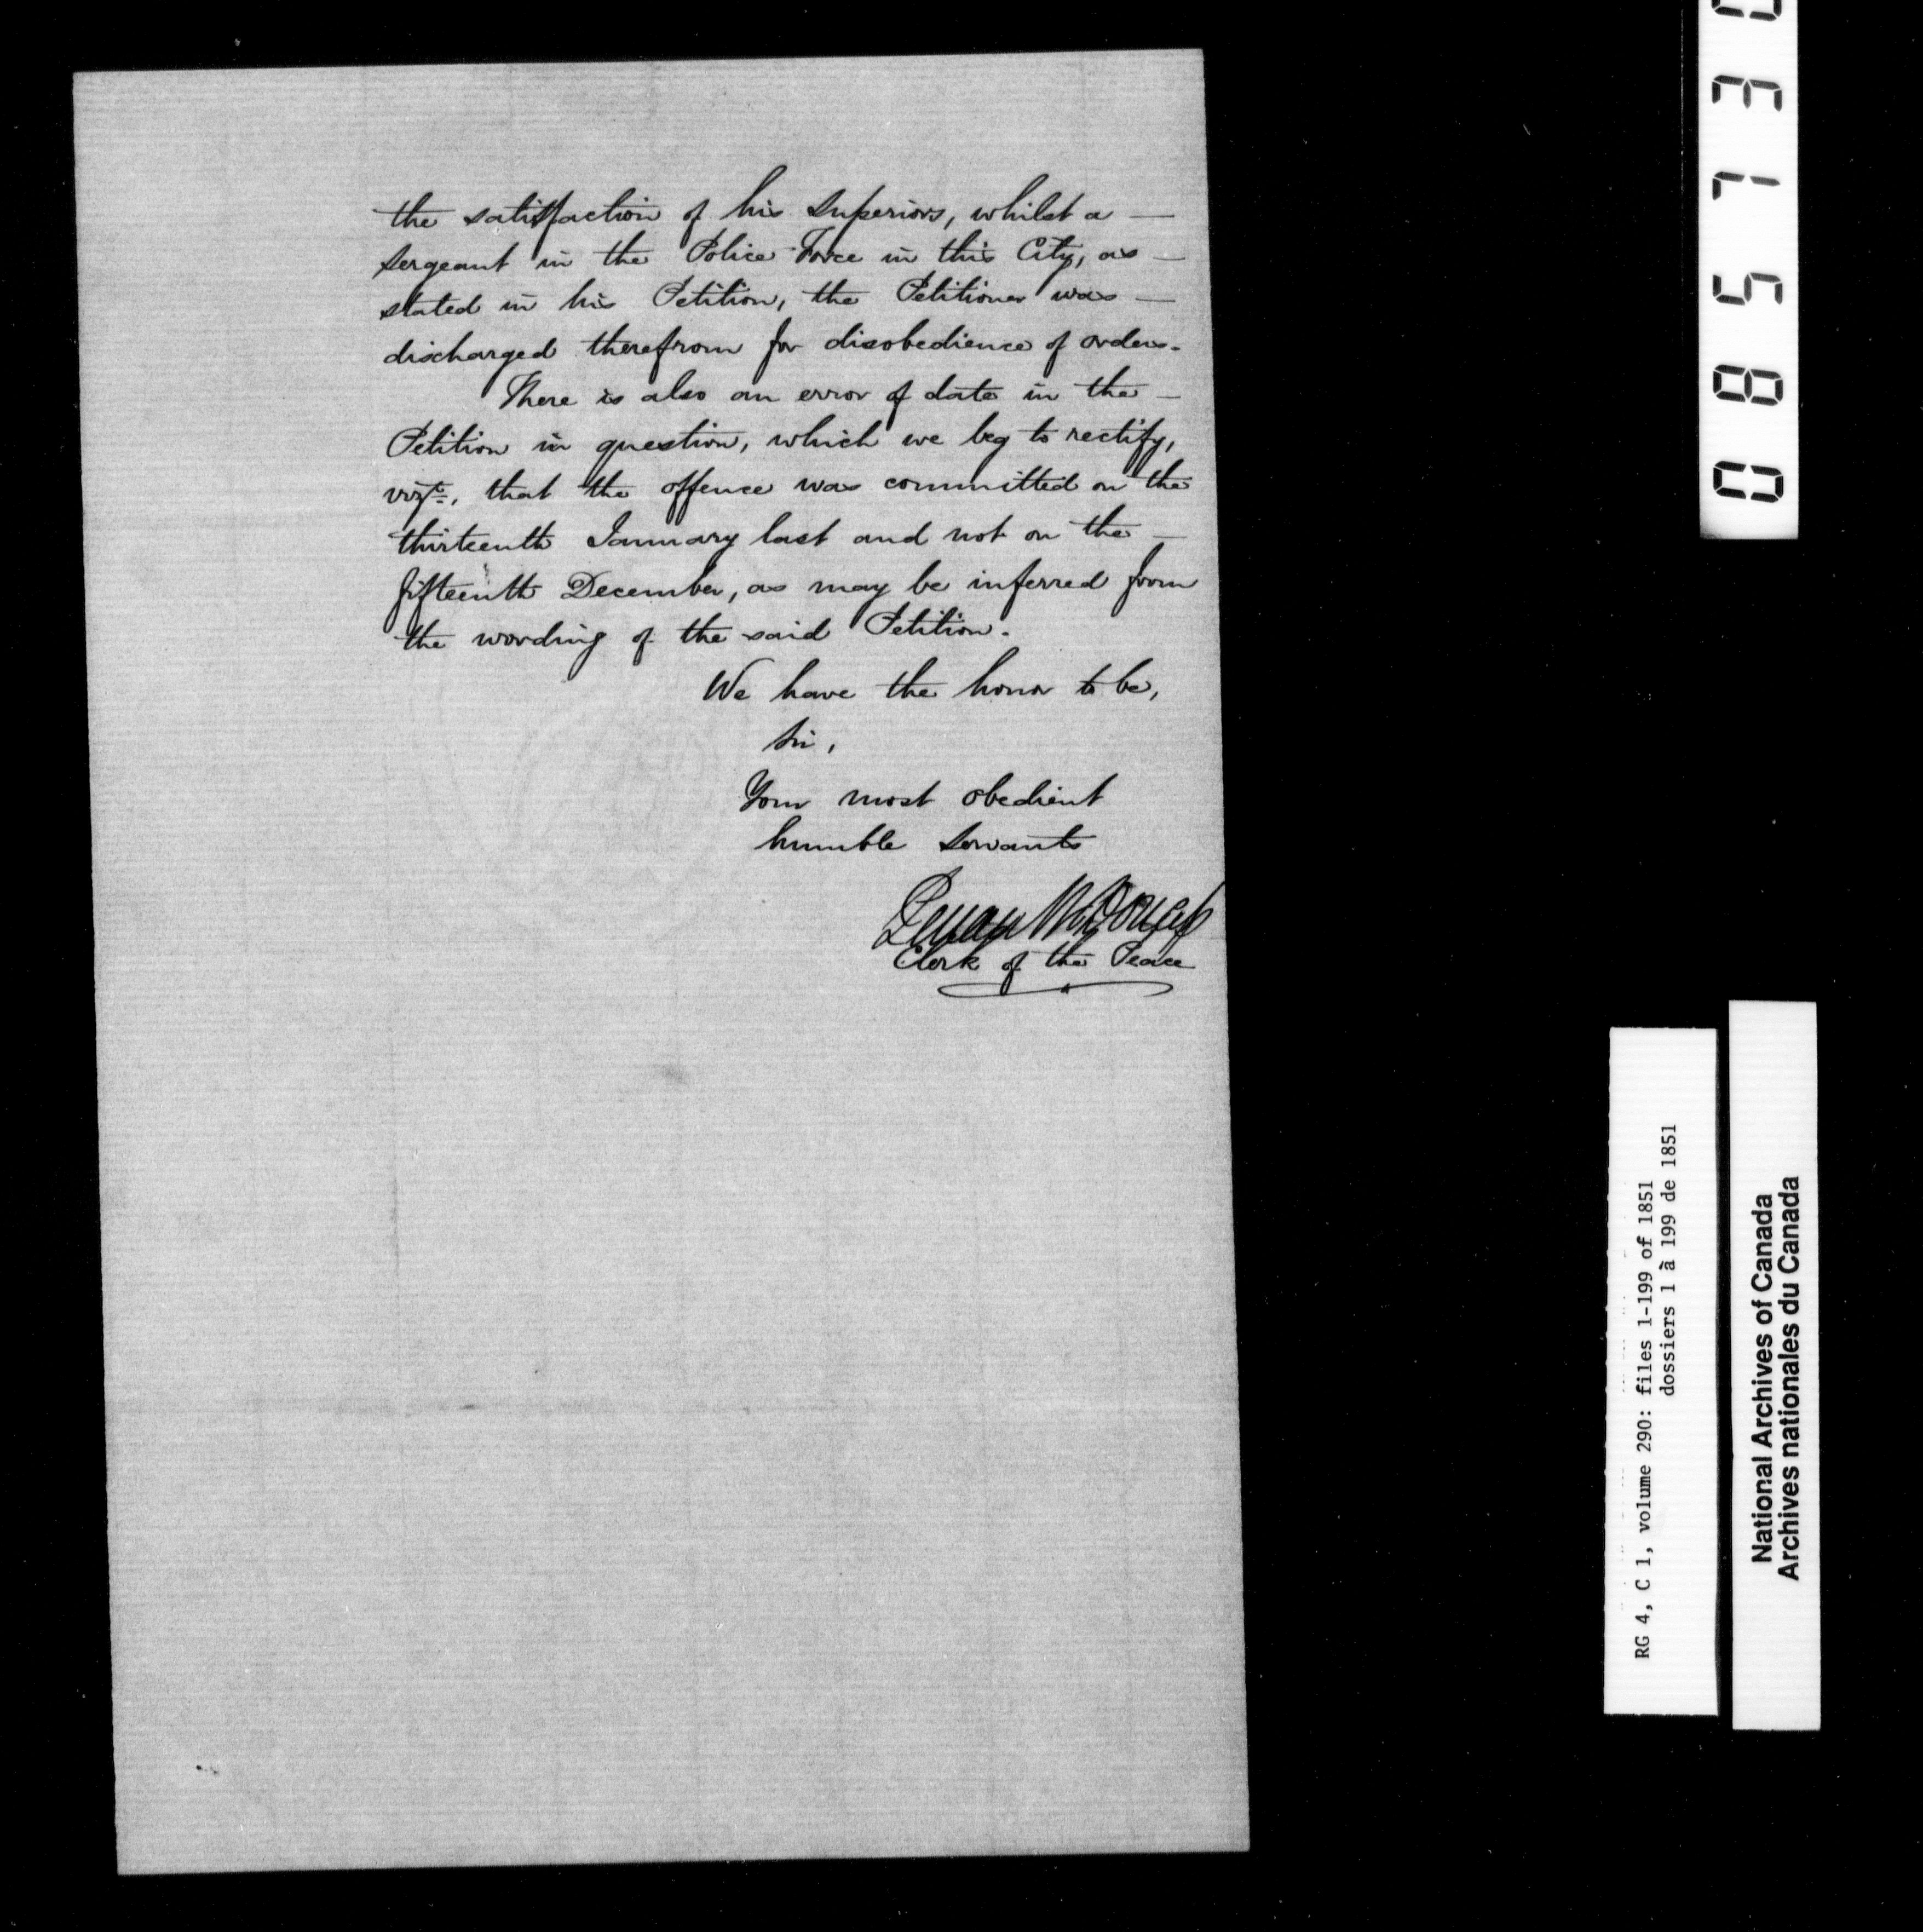 the satisfaction of his Superiors, whilst a —
Sergeant in the Police Force in this City, as —
stated in his Petition, the Petitioner was —
discharged therefrom for disobedience of orders.
There is also an error of date in the —
Petition in question, which we beg to rectify,
vizt., that the offence was committed on the
thirteenth January last and not on the —
fifteenth December, as may be inferred from
the wording of the said Petition.
We have the honor to be,
Sir,
Your most obedient
humble Servants
Clerk of the Peace
08573
RG 4, C 1, volume 290: files 1-199 of 1851
dossiers 1 à 199 de 1851
National Archives of Canada
Archives nationales du Canada